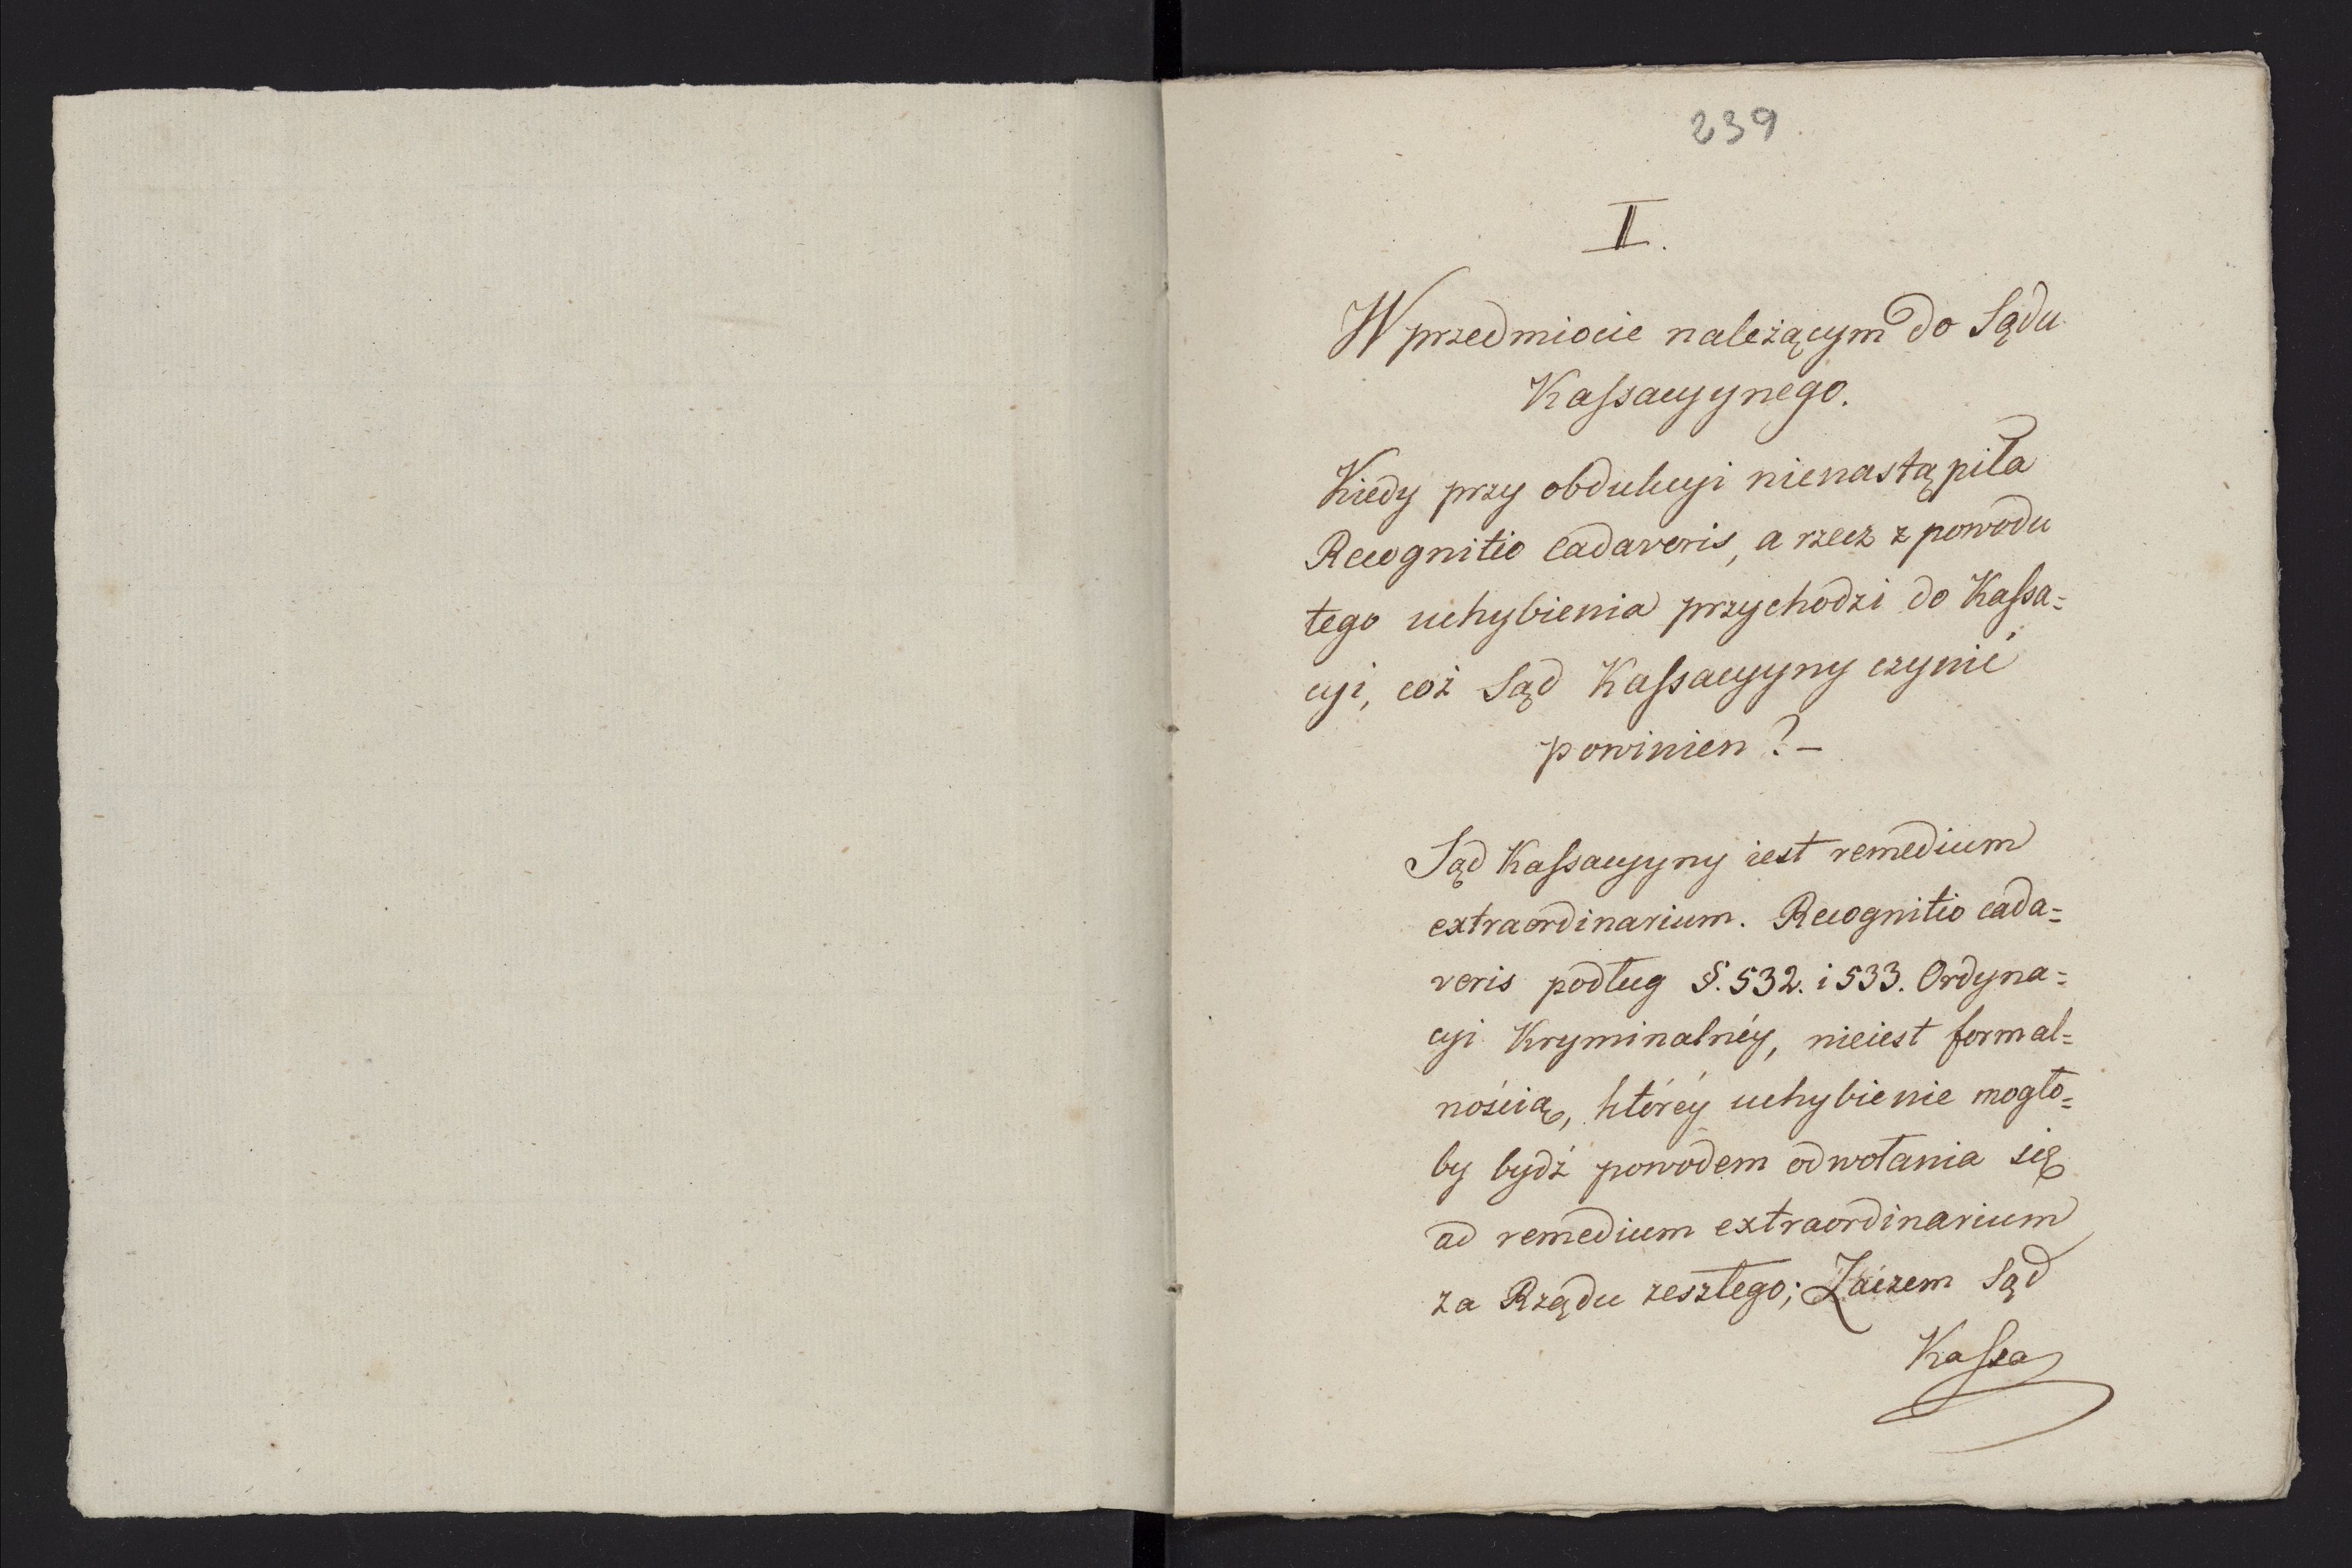 239
II.
W przedmiocie należącym do Sądu
Kassacyynego.
Kiedy przy obdukcyi nienastąpiła
Recognitio Cadaveris, a rzecz z powodu
tego uchybienia przychodzi do Kassa=
cyi, coż Sąd Kassacyyny czynić
powinien? –
Sąd Kassacyyny iest remedium
extraordinarium. Recognitio cada=
veris podług §. 532. i 533. Ordyna=
cyi Kryminalnéy, nieiest formal=
nością, któréy uchybienie mogło=
by bydź powodem odwołania się
ad remedium extraordinarium
za Rządu zeszłego; Zaczem Sąd
Kassa